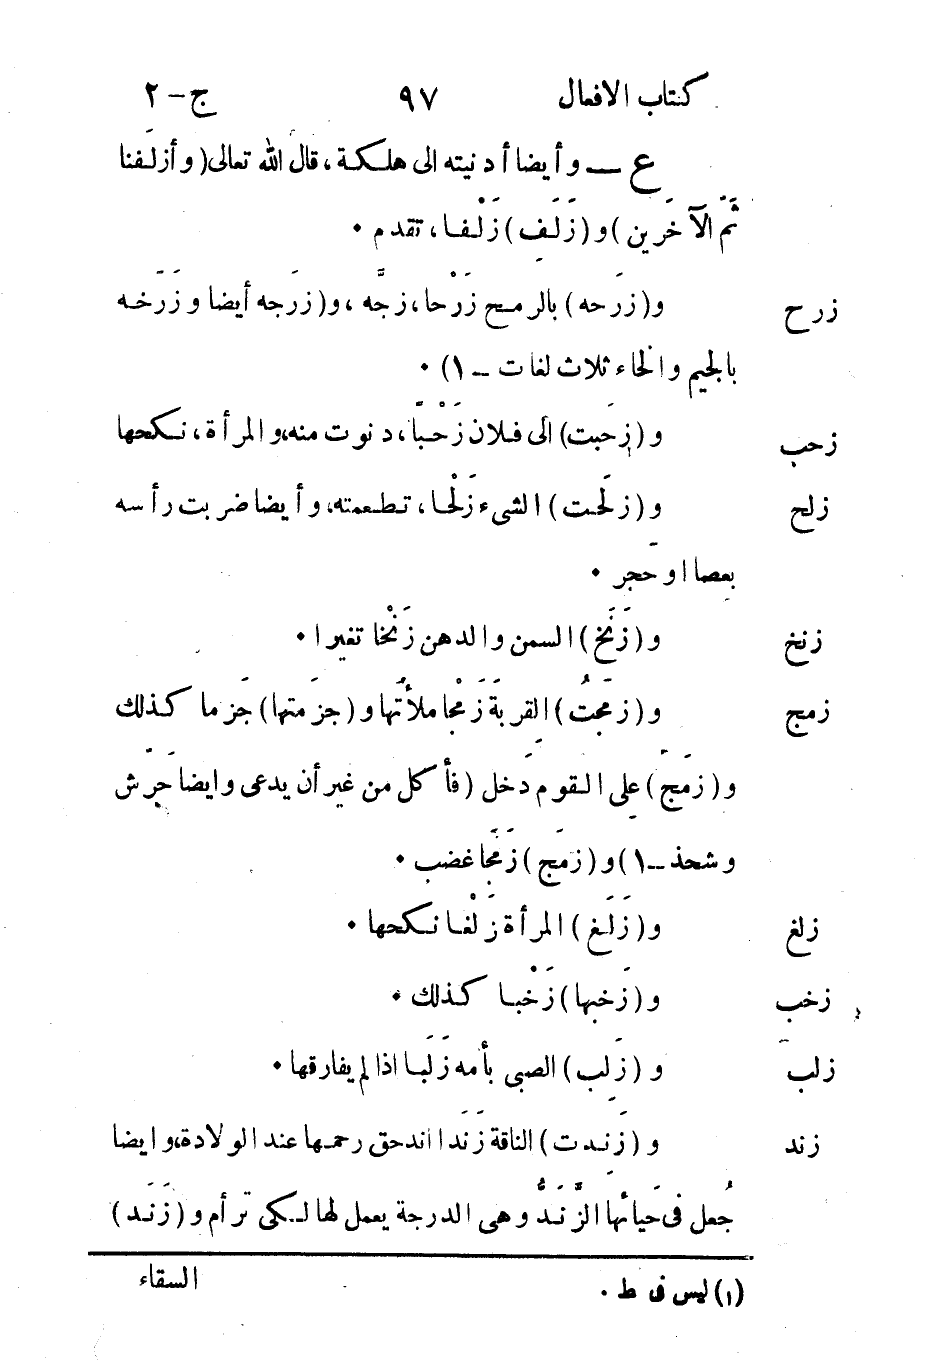 كتاب الافعال ٩٧ ج – ٢
ع — وأيضا أدنيته الى هلكة، قال الله تعالى (وأزلَفنا
ثَمَّ الآخَرين) و (زَلَف) زَلْفا، تقدم •
زرح و (زرَحه) بالرمح زَرْحا، زجَّه، و (زرَجه أيضا وزَرَّخه
بالجيم والخاء ثلاث لغات – ١) •
زحب و (زحَبت) الى فلان زَحْبًا، دنوت منه، والمرأة، نكحها
زلح و (زلَحت) الشىء زَلْحا، تطعمته، وأيضا ضربت رأسه
بعصا او حَجر •
زنخ و (زَنَخ) السمن والدهن زَنْخا تغيرا •
زمج و (زمَجتُ) القربَة زَمْجا ملأتُها و (جزَمتها) جَزما كذلك
و (زمَج) على القوم دَخل (فأكل من غير أن يدعى وايضا حَرّش
وشحذ – ١) و (زمِج) زَمَجًا غضب •
زلغ و (زَلَغ) المرأة زَلْغا نكحها •
زخب و (زَخبها) زَخْبا كذلك •
زلب و (زَلِب) الصبى بأمه زَلَبا اذا لم يفارقها •
زند و (زَندت) الناقة زَنَدا اندحق رحمها عند الولادة، وايضا
جُعل فى حَيائها الزَّنَدُ وهى الدرجة يعمل لها لكى ترأم و (زَنَد)
السقاء
(١) ليس فى ط •